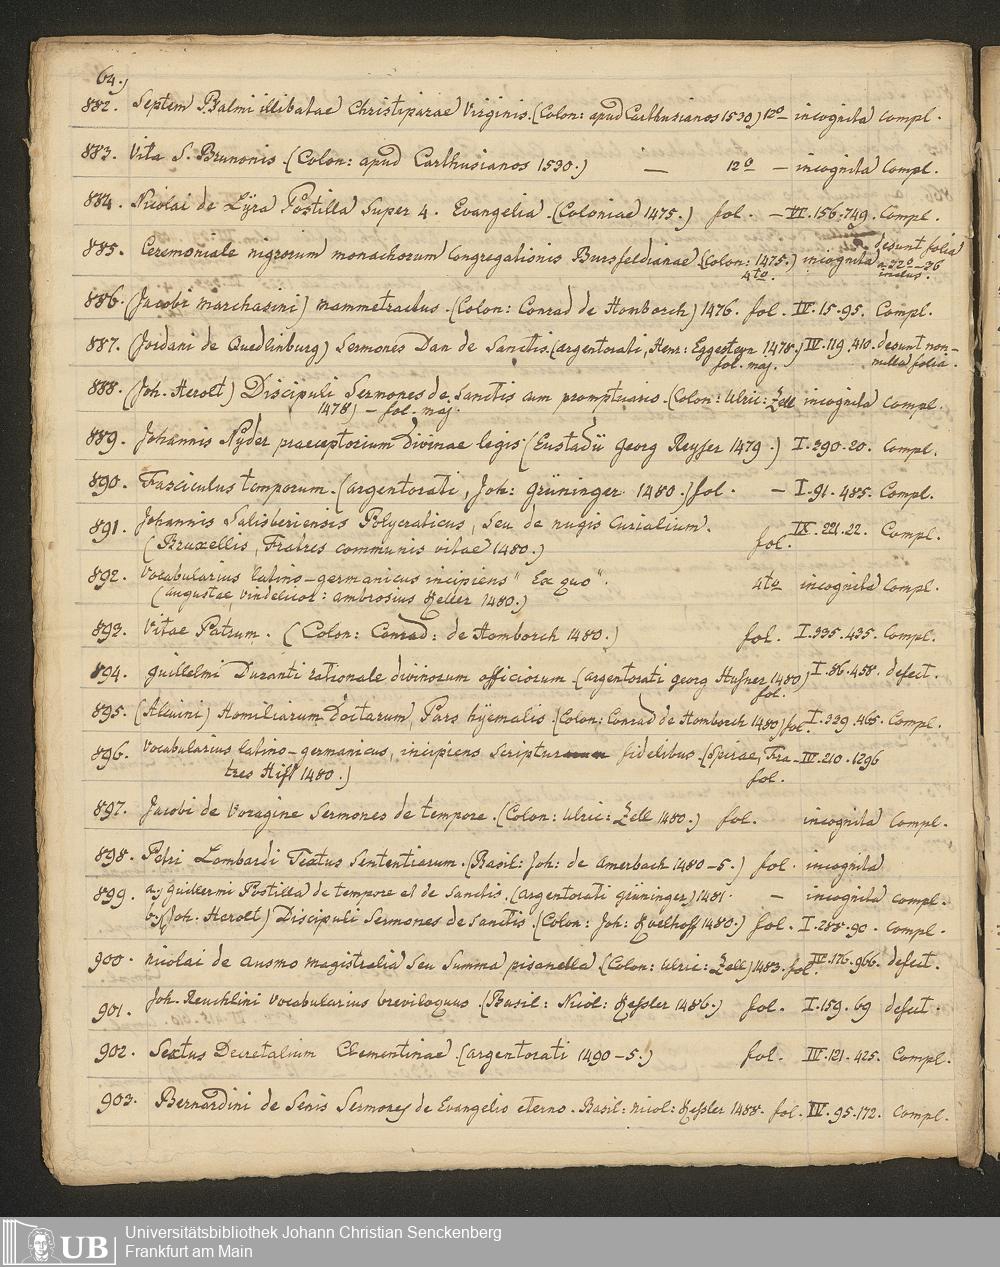 64.)
882. Septem Psalmi illibatae Christiparae Virginis. (Colon: apud Carthusianos 1530) 12o — incognita compl.
883. Vita S. Brunonis. (Colon: apud Carthusianos 1530.) — 12o — incognita compl.
884. Nicolai de Lÿra Postilla super 4. Evangelia. (Coloniae 1475.) fol. — VI. 156. 749. Compl.
885. Ceremoniale nigrorum monachorum Congregationis Bursfeldianae (Colon: 1475.) incognita desunt folia
4to. a 32o–36
inclus.
886. (Jacobi marchasini) mammetractus. (Colon: Conrad de Homborch) 1476. fol. IV. 15. 95. Compl.
887. Jordani de Quedlinburg) Sermones Dan de Sanctis. (argentorati, Henr: Eggesteyn 1478.) IV. 119. 410. desunt non-
fol. maj. nulla folia.
888. (Joh. Herolt) Discipuli Sermones de Sanctis cum promptuario. (Colon: Ulric: Zell incognita compl.
1478) – fol. maj.
889. Johannis Nyder praeceptorium divinae legis (Eustadii Georg Reyser 1479.) I. 290. 20. Compl.
890. Fasciculus temporum. (argentorati, Joh: Grüninger 1480.) fol. — I. 91. 485. Compl.
891. Johannis Salisberiensis Polycraticus, seu de nugis Curialium.
(Bruxellis, Fratres communis vitae 1480.) fol. IX. 221. 22. Compl.
892. Vocabularius latino–germanicus incipiens "Ex quo".
(augustae vindelicor: ambrosius Keller 1480.) 4to incognita compl.
893. Vitae Patrum. (Colon: Conrad: de Homborch 1480.) fol. I. 335. 435. Compl.
894. Guillelmi Duranti rationale divinorum officiorum. (argentorati georg Husner 1480) I. 86. 458. defect.
fol.
895. (Alcuini) Homiliarum Doctarum, Pars hÿemalis. (Colon: Conrad de Homborch 1480) fol. I. 339. 465. Compl.
896. Vocabularius latino–germanicus, incipiens Scriptur fidelibus. (Spirae, Fra- IV. 210. 1296
tres Hist 1480.) fol.
897. Jacobi de Voragine Sermones de tempore. (Colon: Ulric: Zell 1480.) fol. incognita Compl.
898. Petri Lombardi Textus Sententiarum. (Basil: Joh: de Amerbach 1480–5.) fol. incognita
899. a) Guillermi Postilla de tempore et de Sanctis. (argentorati Grüninger) 1481. — incognita compl.
b) (Joh: Herolt) Discipuli Sermones de Sanctis. (Colon: Joh: Koelhoff 1480.) fol. I. 288. 90. compl.
900. Nicolai de Ausmo magistralia seu Summa pisanella. (Colon: Ulric: Zell) 1483. fol. IV. 176. 966. defect.
901. Joh. Reuchlini Vocabularius breviloquus. (Basil: Nicol: Kessler 1486.) fol. I. 159. 69 defect.
902. Sextus Decretalium Clementinae. (argentorati 1490–5.) fol. IV. 121. 425. Compl.
903. Bernardini de Senis Sermones de Evangelio eterno. Basil: nicol: Kessler 1488. fol. IV. 95. 172. Compl.
UB
Universitätsbibliothek Johann Christian Senckenberg
Frankfurt am Main